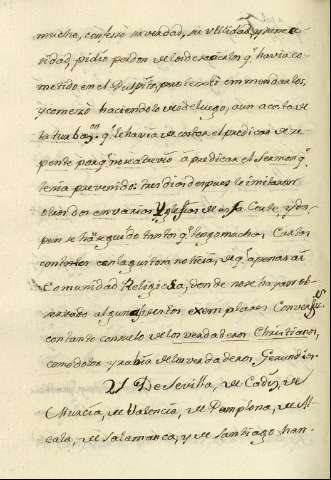 mucho, confesó su verdad, su utilidad, y nece
sidad, pidio perdon de los desaciertos qᵉ havia co
metido en el Pulpito, protestó enmendarlos,
y comenzó haciendolo desde luego, aun a costa de
la turbazⁿ qᵉ le havia de costar el predicar de re
pente porqᵉ no se atrevió a predicar el Sermon qᵉ
tenia prevenido: tres dias despues le imitaron
otros dos en varias Yglesias de esta Corte, y des
pues se han seguido tantos qᵉ tengo muchas Cartas
contextes con la gustosa noticia, de qᵉ apenas ai
Comunidad Religiosa, donde no se hayan ob
servado algunos destos exemplares Converses
con tanto consuelo de los verdaderos Christianos,
como dolor y rabia de los verdaderos Gerundios.
De Sevilla, de Cadiz, de
Murcia, de Valencia, de Pamplona, de Al
cala, de Salamanca, y de Santiago han